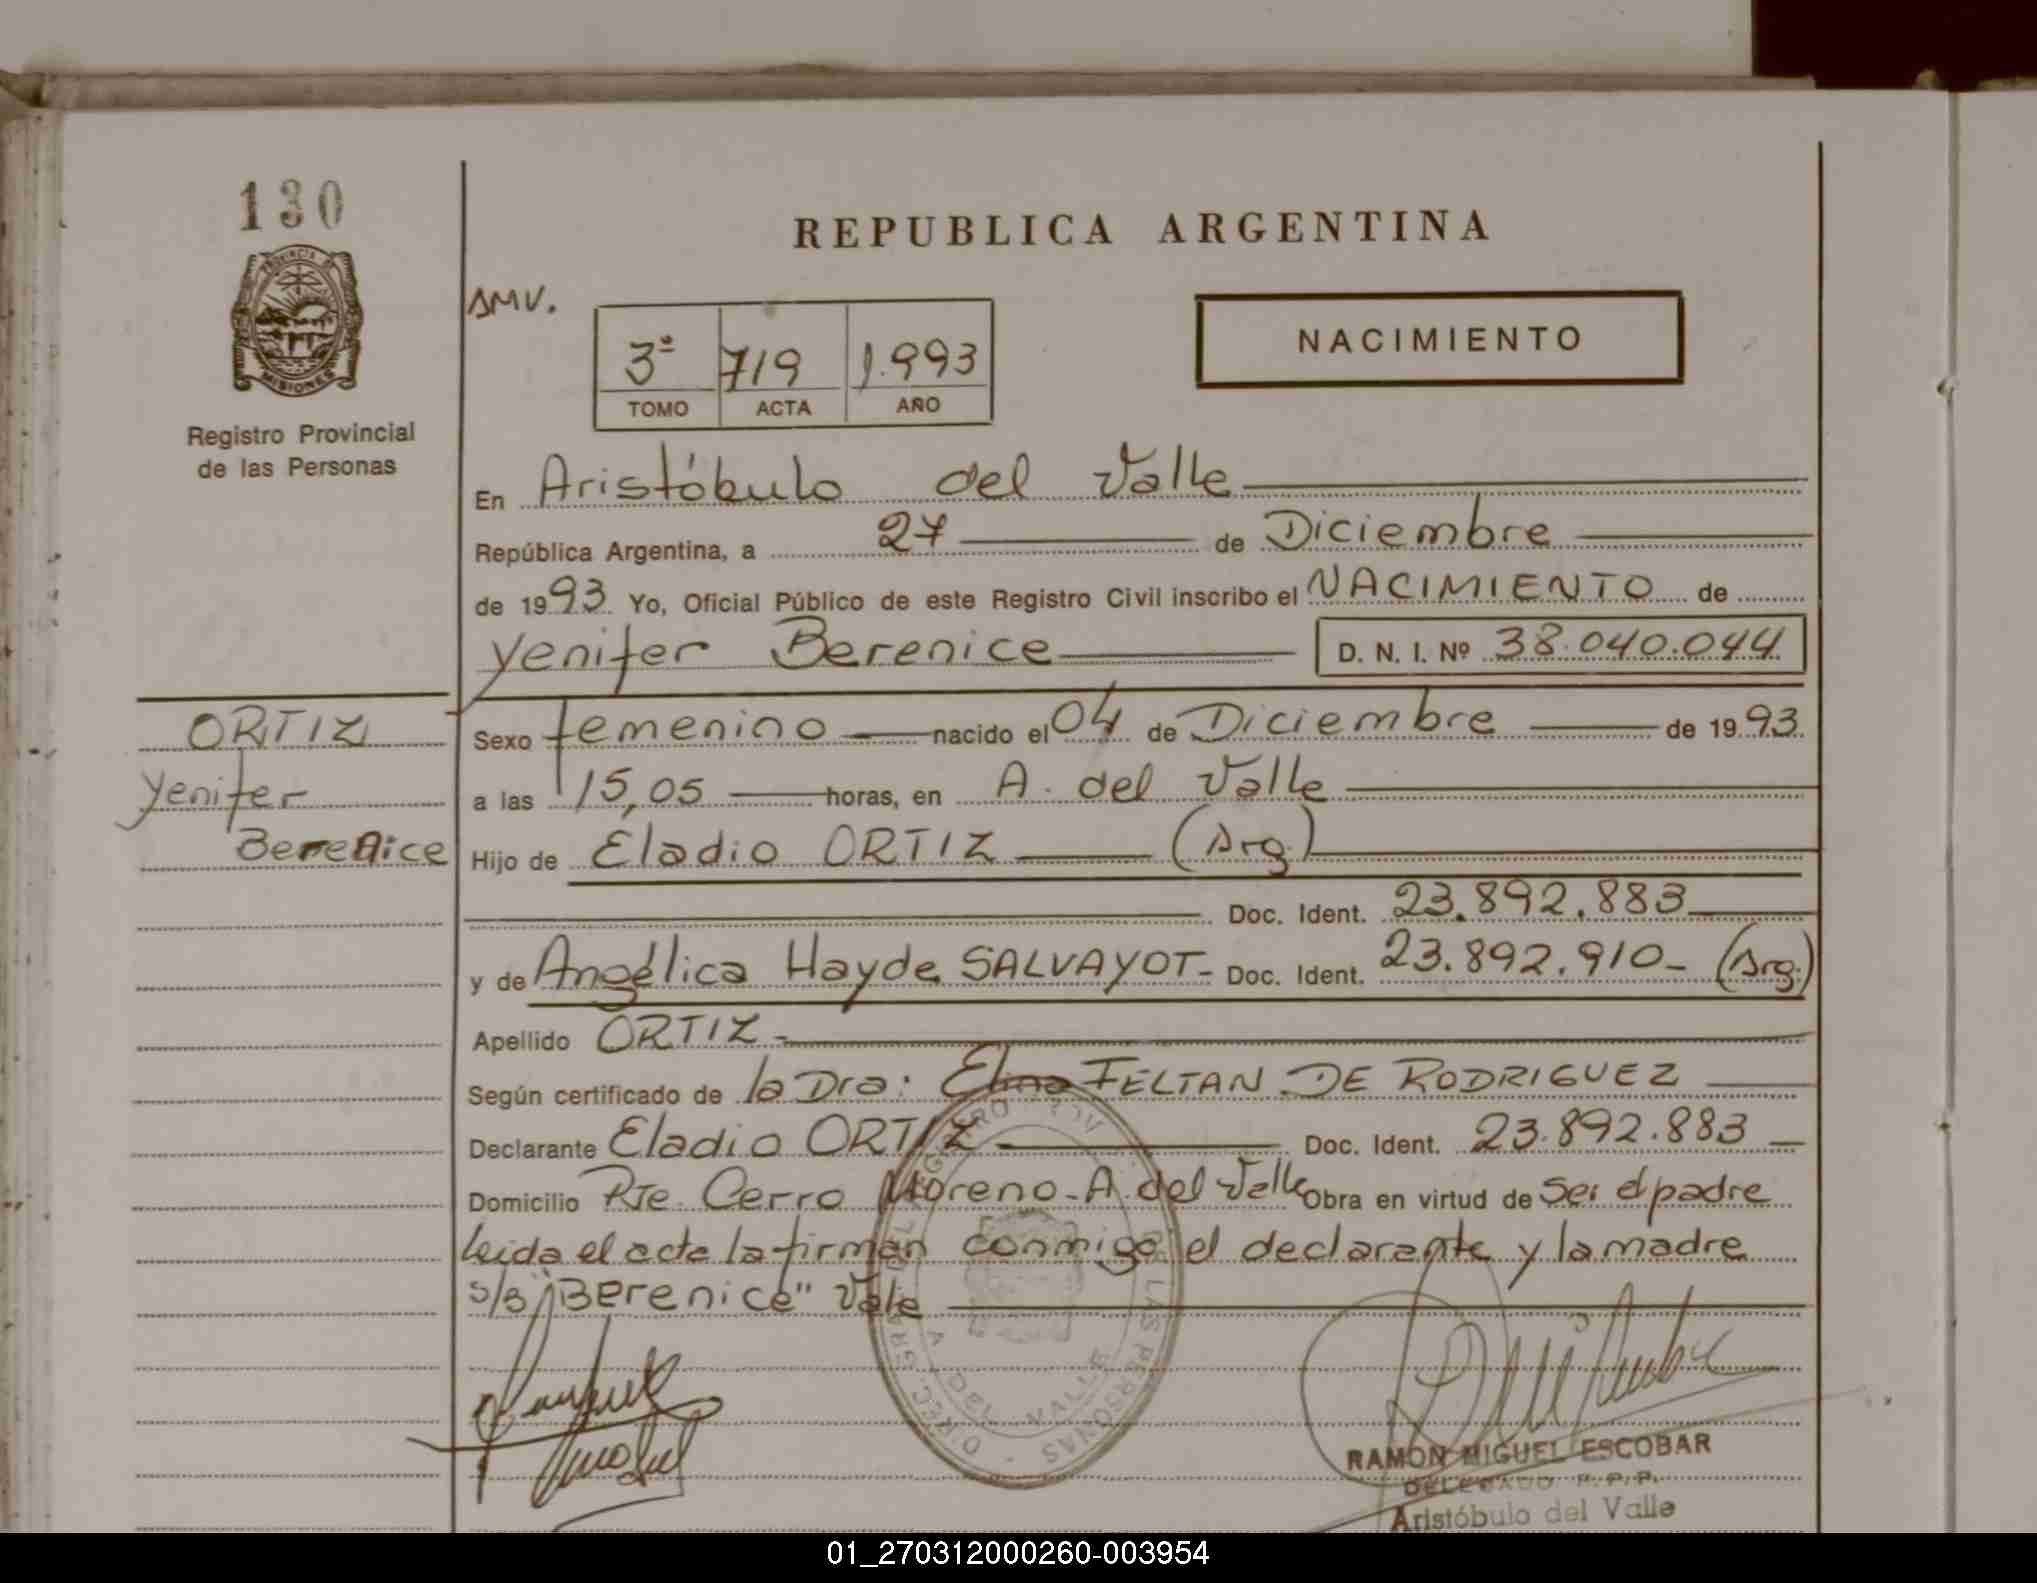 130
PROVINCIA DE
MISIONES
Registro Provincial
de las Personas
REPUBLICA ARGENTINA
AMV.
3º 719 1.993
TOMO ACTA AÑO
NACIMIENTO
En Aristóbulo del Valle
República Argentina, a 27 de Diciembre
de 1993 Yo, Oficial Público de este Registro Civil inscribo el NACIMIENTO de
Yenifer Berenice D. N. I. Nº 38.040.044
ORTIZ
Yenifer
Berenice
Sexo femenino nacido el 04 de Diciembre de 1993.
a las 15,05 horas, en A. del Valle
Hijo de Eladio ORTIZ (Arg)
Doc. Ident. 23.892.883
y de Angélica Hayde SALVAYOT- Doc. Ident. 23.892.910- (Arg.)
Apellido ORTIZ-
Según certificado de la Dra: Elma FELTAN DE RODRIGUEZ
Declarante Eladio ORTIZ Doc. Ident. 23.892.883
Domicilio Pje. Cerro Moreno-A. del Valle Obra en virtud de ser el padre
leida el acta la firman conmigo el declarante y la madre
s/B "Berenice" Vale
DE LAS PERSONAS
A. DEL VALLE
RAMON MIGUEL ESCOBAR
DELEGADO R.P.P.
Aristóbulo del Valle
01_270312000260-003954